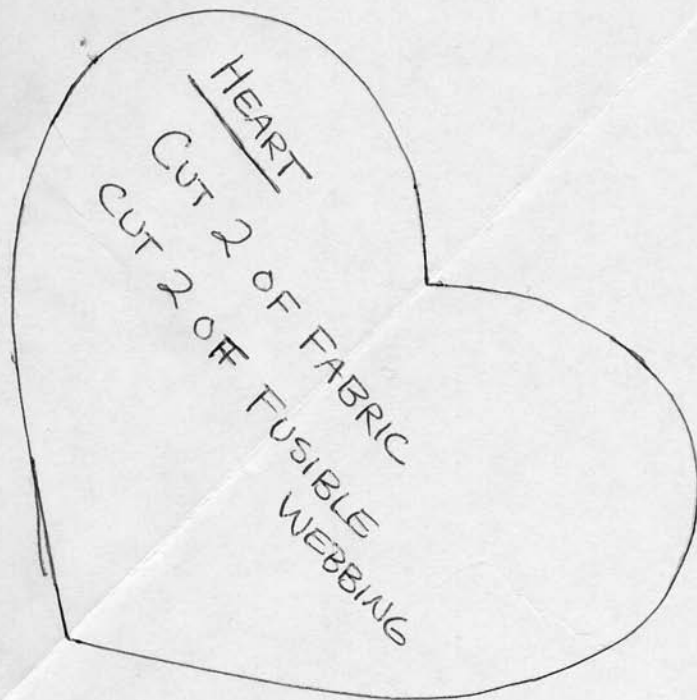 HEART
CUT 2 OF FABRIC
CUT 2 OFF FUSIBLE
WEBBING